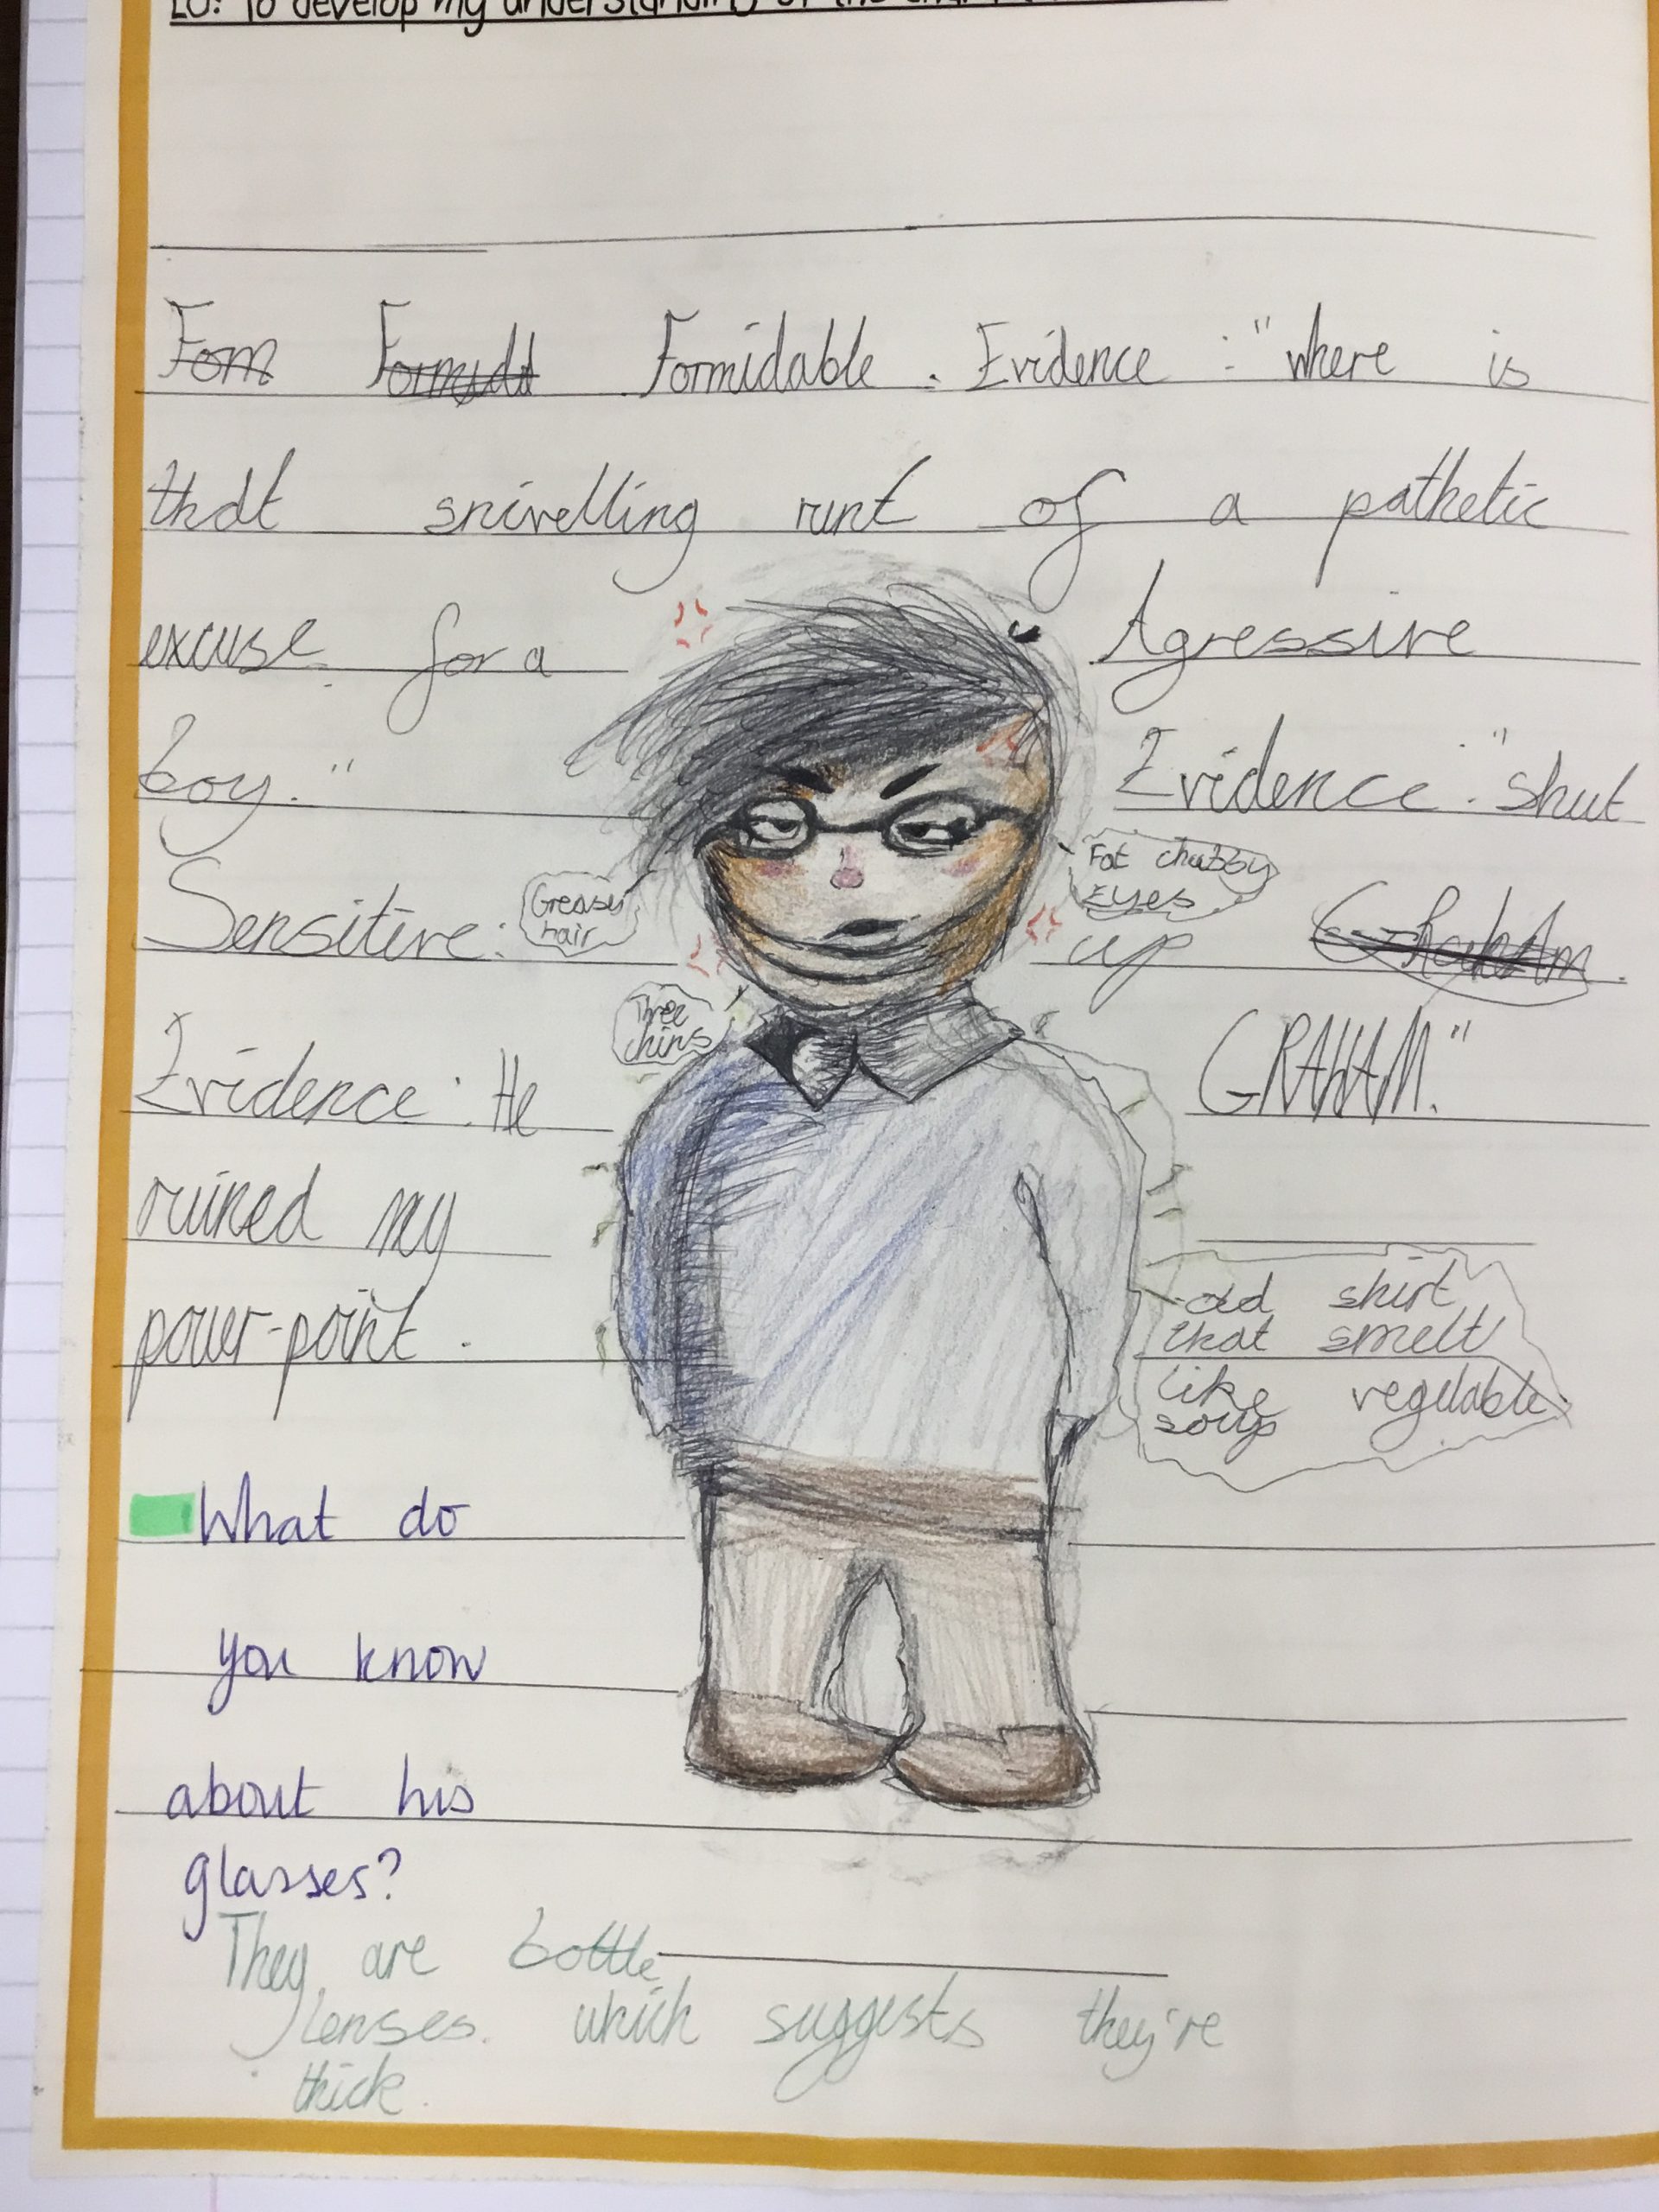 LO: To develop my understanding of the
Form Formudd Formidable. Evidence: "where is
that snivelling runt of a pathetic
excuse for a
boy."
Agressive
Evidence: "shut
up Grahahm
GRAHAM."
Sensitive:
Evidence: He
ruined my
power-point.
Greasy
hair
Fat chubby
Eyes
Three
chins
old shirt
that smelt
like vegetable
soup
What do
you know
about his
glasses?
They are bottle
lenses. which suggests they're
thick.